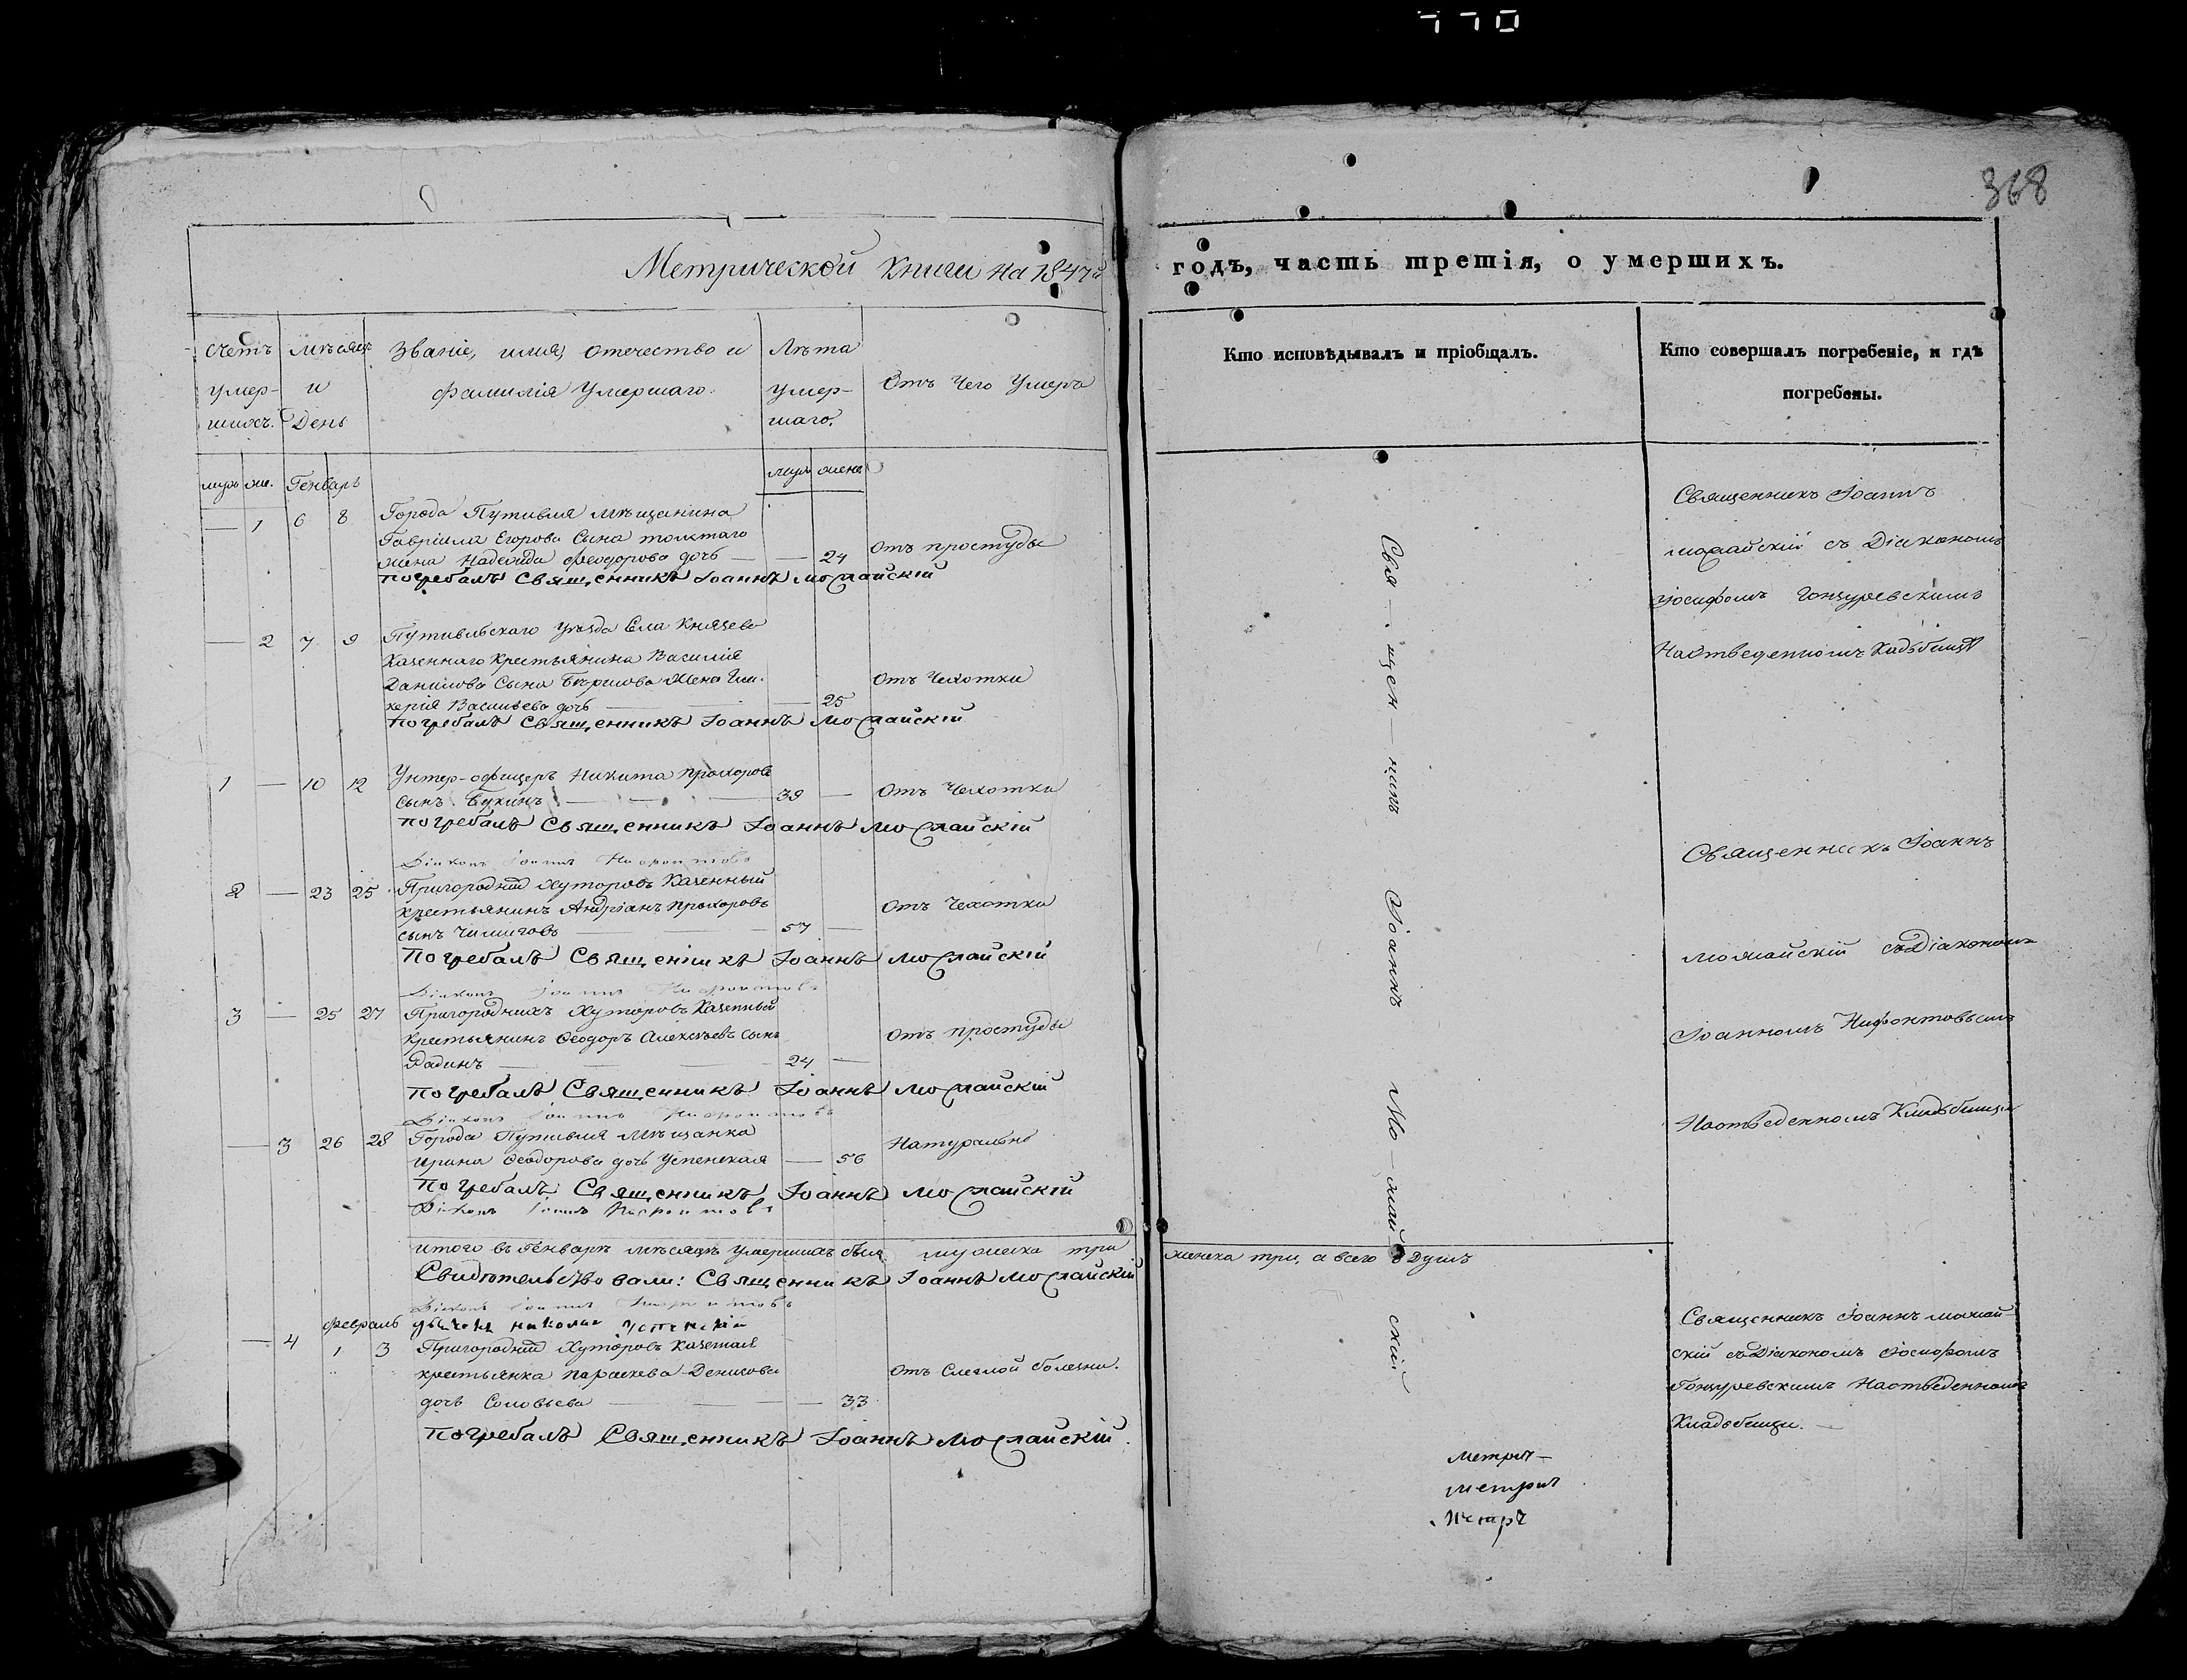 368
Метрической книги на 1847й годъ, часть третія, о умершихъ.
Счетъ умер-шихъ.
Мѣсяцъ и День
Званіе, имя, отечество и
фамилія умершаго.
Лѣта
умер-
шаго.
Отъ чего умеръ
Кто исповѣдывалъ и пріобщалъ.
Кто совершалъ погребеніе, и гдѣ
погребены.
муж. же. Генварь
муж. жена
— 1 6 8 Города Путивля мѣщанина
Гавріила Егорова Сына толстаго
жена Надежда Феодорова дочь — — 24 Отъ простуды
погребалъ Священникъ Іоаннъ Можайскій
— 2 7 9 Путивльскаго уѣзда Села Князева
Казеннаго крестьянина Василія
Данилова Сына жена Гли-
керія Васильева дочь — — 25 Отъ Чехотки
погребалъ Священникъ Іоаннъ Можайскій
1 — 10 12 Унтер-офицеръ Никита прохоровъ
сынъ Букинъ — — 39 — Отъ Чехотки
погребалъ Священникъ Іоаннъ Можайскій
Діаконъ Іоаннъ Нифонтовъ
2 — 23 25 Пригородніхъ Хуторовъ Казенный
крестьянинъ Андріанъ прохоровъ
сынъ — — 57 — Отъ Чехотки
Погребалъ Священникъ Іоаннъ Можайскій
Діаконъ Іоаннъ Нифонтовъ
3 — 25 27 Пригородныхъ Хуторовъ Казенный
крестьянинъ Ѳеодоръ Алексѣевъ сынъ
Дадинъ — — 24 — Отъ простуды
погребалъ Священникъ Іоаннъ Можайскій
Діаконъ Іоаннъ Нифонтовъ
— 3 26 28 Города Путивля Мѣщанка
Ирина Ѳеодорова дочь Успенская — 56 Натурально
Погребалъ Священникъ Іоаннъ Можайскій
Діаконъ Іоаннъ Нифонтовъ
Итого въ Генварѣ мѣсяцѣ умершихъ было мужеска три женска три, а всего 6 Душъ
Свидѣтельствовали: Священникъ Іоаннъ Можайскій
Діаконъ Іоаннъ Нифонтовъ
Февраль
дьячекъ николай успенскій
— 4 1 3 Пригородніхъ Хуторовъ Казенная
крестьянка параскева Денисова
дочь Соловьева — — 33 Отъ болезни.
Погребалъ Священникъ Іоаннъ Можайскій.
Свя—щен—никъ Іоаннъ Мо—жай—скій
Священникъ Іоаннъ
можайскій съ Діакономъ
Іосифомъ Гонзуревскимъ
На отведенномъ Кладбищѣ
Священникъ Іоаннъ
Можайскій съ Діакономъ
Іоанномъ Нифонтовымъ
На отведенномъ Кладбищѣ
Священникъ Іоаннъ можай-
скій съ Діакономъ Іосифомъ
Гонзуревскимъ На отведенномъ
Кладбищи. —
Метрич—
метрич
Метрч